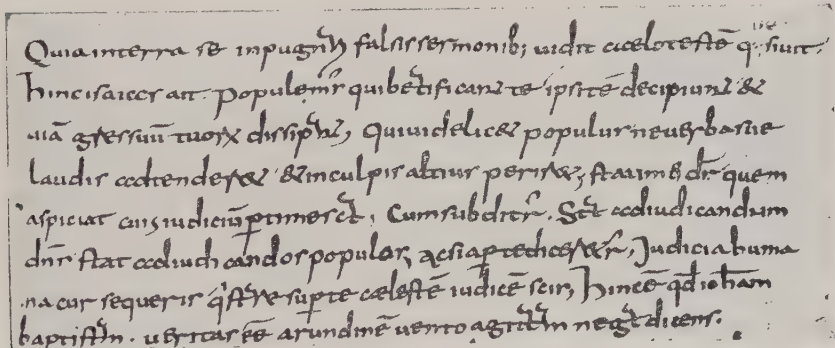 Quia in terra se inpugnari falsis sermonib; uidit cælo testē quesiuit.
hinc isaias ait. Popule mr̄ qui beatificant te ipsi tē decipiunt &
uiā gressuū tuorꝝ dissipant, Qui uidelic& populus ne uerba sue
laudis adtender& & in culpis altius perir&, statim ei dr̄ quem
aspiciat cuiꝰ iudiciū ꝑtimescat, Cum subditr̄. Stat ad iudicandum
dn̄s stat ad iudicandos populos, ac si aperte dicer&r̄, Judicia huma
na cur sequeris q̄ stare suꝑ te cælestē iudicē scis, hinc ē qd̄ ioh̄am
baptistam. ueritas eē arundinē uento agitatam negat dicens.